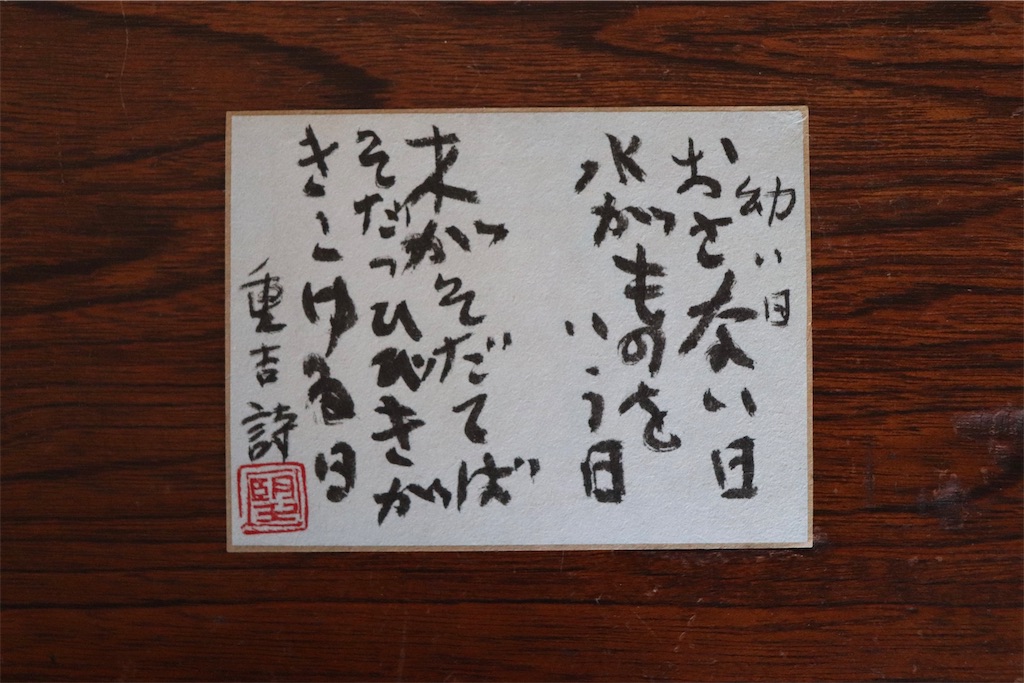 幼い日
おさない日
水がものを
いう日
木がそだてば
そだつひびきが
きこゆる日
重吉詩